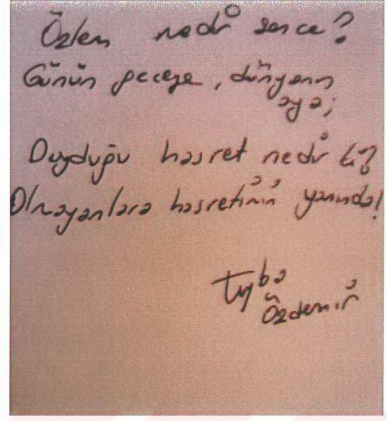 Özlem nedir sence?
Günün geceye, dünyanın
aya;
Duyduğu hasret nedir ki?
Olmayanlara hasretinin yanında!
Tuba
Özdemir